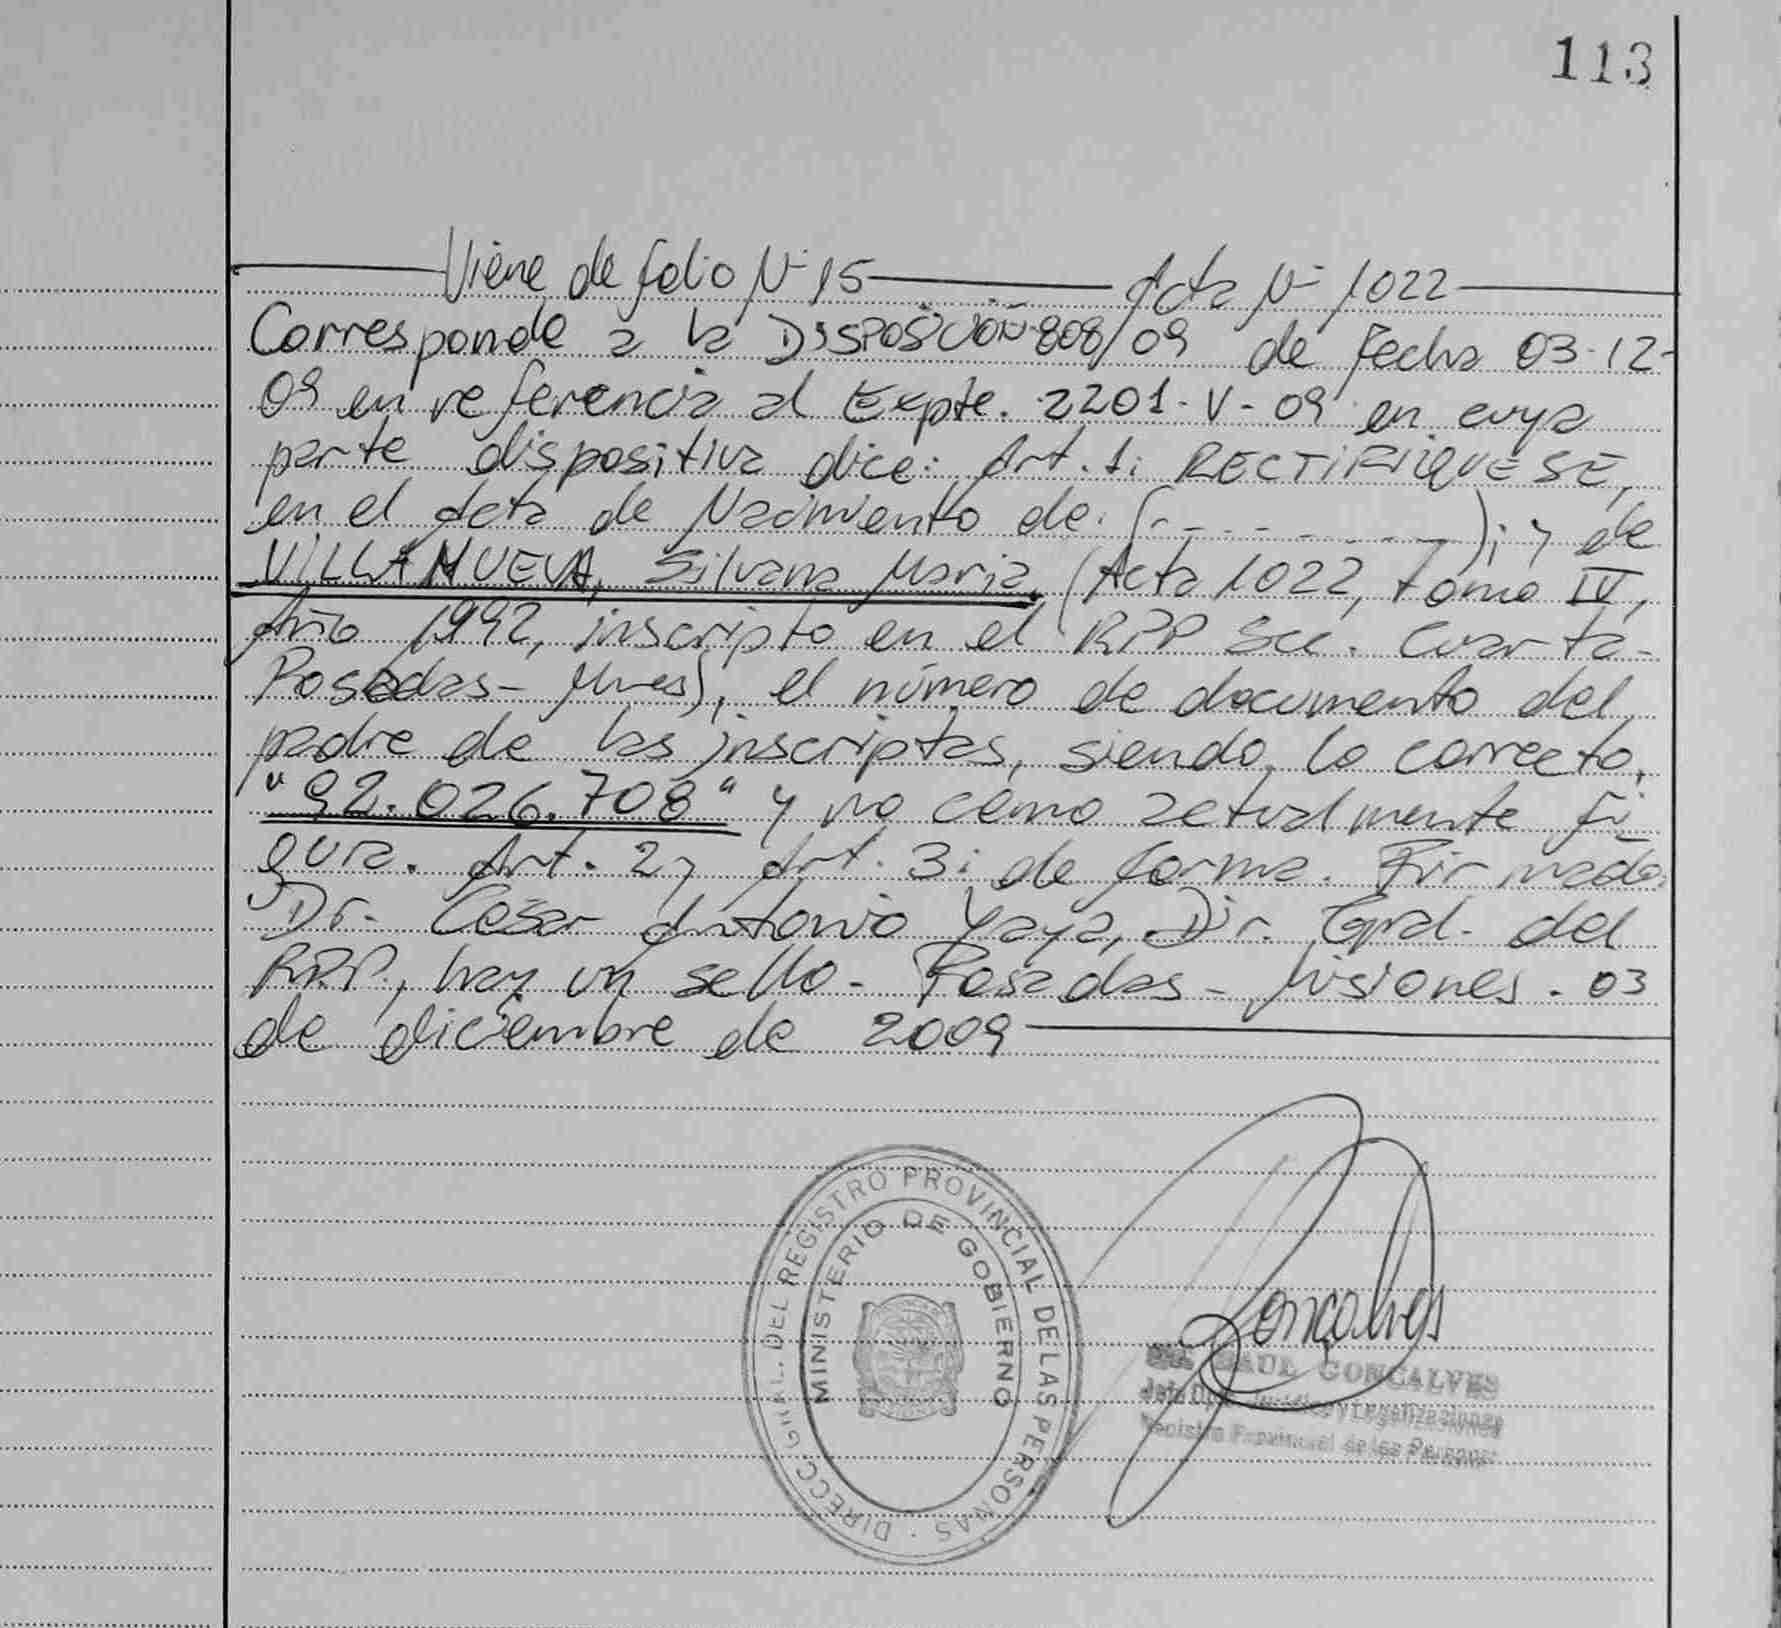 113
Viene de folio Nº 15 — Acta Nº 1022
Corresponde a la DISPOSICION 808/09 de fecha 03-12-
09 en referencia al Expte. 2201-V-09 en cuya
parte dispositiva dice: Art. 1: RECTIFIQUESE,
en el Acta de Nacimiento de: (- - - - - - - -); y de
VILLANUEVA, Silvana Maria, (Acta 1022, tomo IV,
Año 1992, inscripto en el RPP Sec. Cuarta-
Posadas- Mnes), el número de documento del
padre de las inscriptas, siendo lo correcto,
"92.026.708" y no como actualmente fi-
gura. Art. 2 y Art. 3: de forma. Firmado:
Dr. Cesar Antonio Yaya, Dir. Gral. del
RPP., hay un sello - Posadas - Misiones. 03
de diciembre de 2009
DIRECC. GRAL. DEL REGISTRO PROVINCIAL DE LAS PERSONAS
MINISTERIO DE GOBIERNO
Gonçalves
RAUL GONCALVES
Jefe Dpto. Jurídico y Legalizaciones
Registro Provincial de las Personas